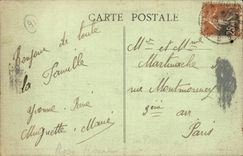 CARTE POSTALE
Bonjour de toute
la famille
Yvonne - René
Muguette - Marie
Mr et Mme
Martinache
rue Montmorency
3ème arr
Paris